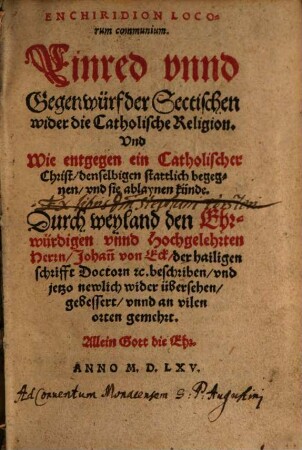 ENCHIRIDION LOCO-
rum communium.
Einred vnnd
Gegenwürf der Sectischen
wider die Catholische Religion.
Vnd
Wie entgegen ein Catholischer
Christ/ denselbigen stattlich begeg-
nen/ vnd sie ablaynen künde.
Ex
Durch weyland den Ehr-
würdigen vnnd Hochgelehrten
Herrn/ Johañ von Eck/ der hailigen
schrifft Doctorn ꝛc. beschriben/ vnd
jetzo newlich wider übersehen/
gebessert/ vnnd an vilen
orten gemehrt.
Allein Gott die Ehr.
ANNO M. D. LXV.
Ad Conuentum Monacensem S. P. Augustini